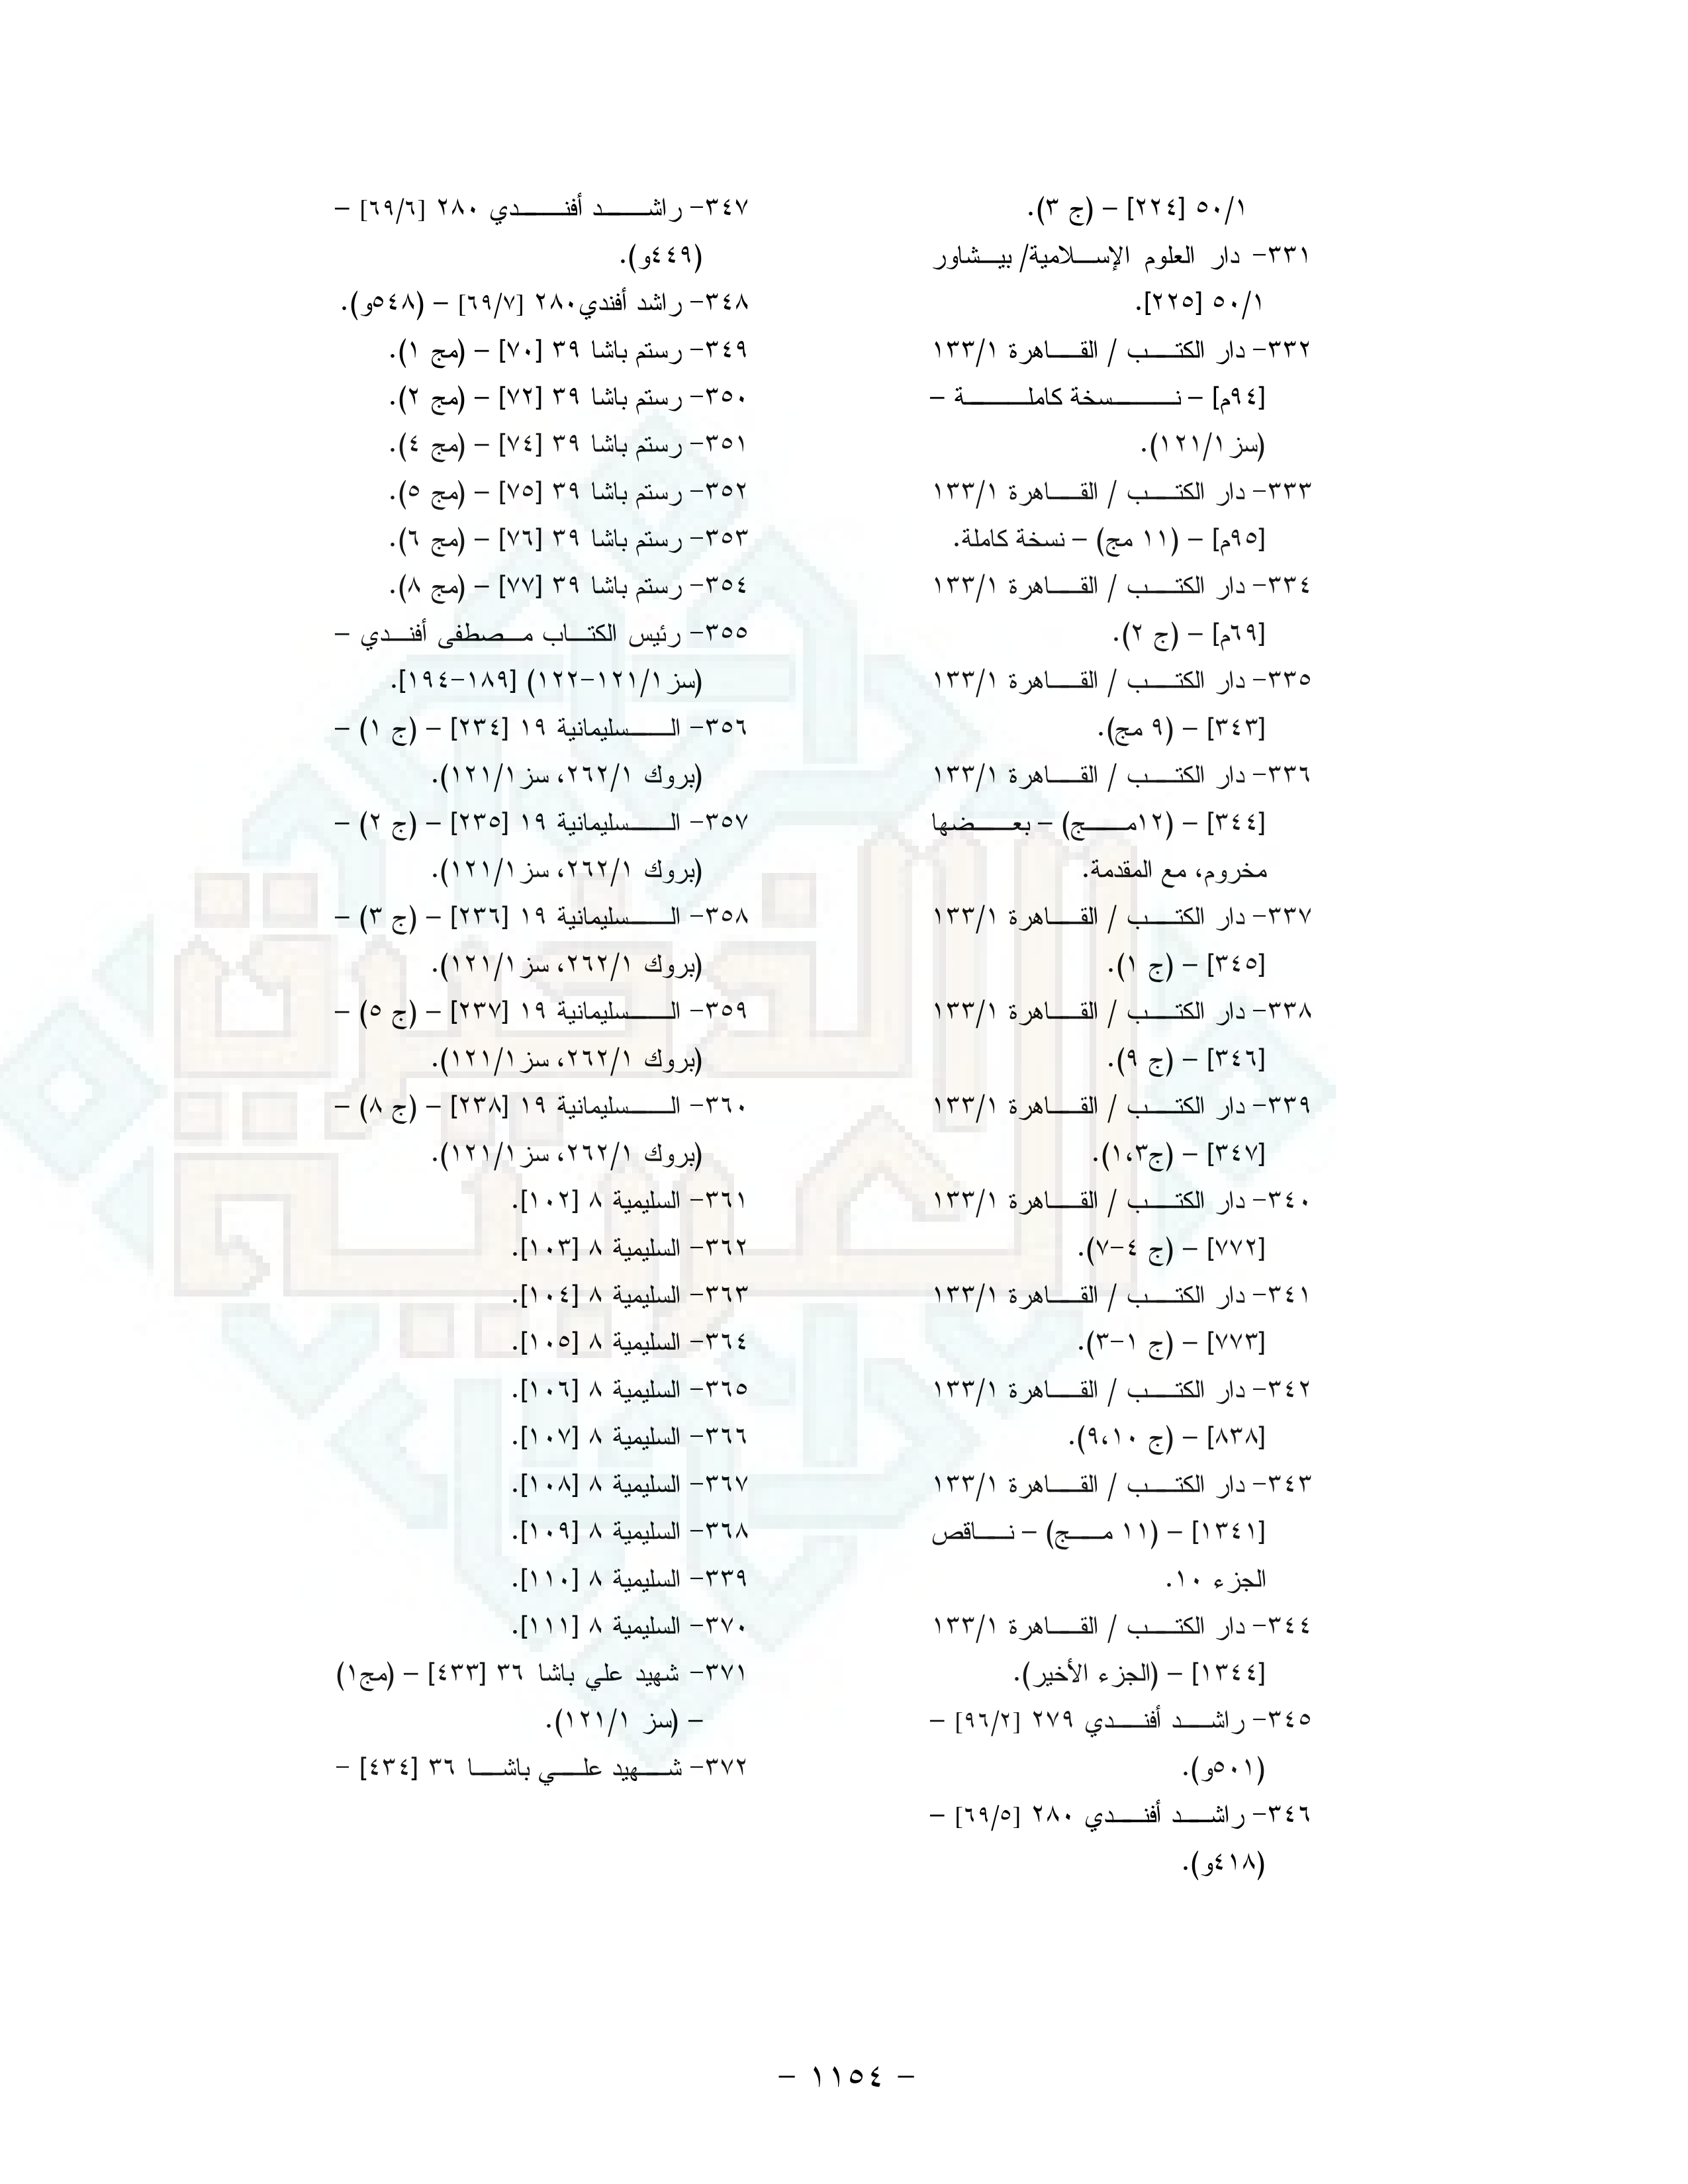 ٥٠/١ [٢٢٤] – (ج ٣).
٣٣١- دار العلوم الإسلامية/ بيشاور
٥٠/١ [٢٢٥].
٣٣٢- دار الكتب / القاهرة ١٣٣/١
[٩٤م] – نسخة كاملة –
(سز ١٢١/١).
٣٣٣- دار الكتب / القاهرة ١٣٣/١
[٩٥م] – (١١ مج) – نسخة كاملة.
٣٣٤- دار الكتب / القاهرة ١٣٣/١
[٦٩م] – (ج ٢).
٣٣٥- دار الكتب / القاهرة ١٣٣/١
[٣٤٣] – (٩ مج).
٣٣٦- دار الكتب / القاهرة ١٣٣/١
[٣٤٤] – (١٢مج) – بعضها
مخروم، مع المقدمة.
٣٣٧- دار الكتب / القاهرة ١٣٣/١
[٣٤٥] – (ج ١).
٣٣٨- دار الكتب / القاهرة ١٣٣/١
[٣٤٦] – (ج ٩).
٣٣٩- دار الكتب / القاهرة ١٣٣/١
[٣٤٧] – (ج١،٣).
٣٤٠- دار الكتب / القاهرة ١٣٣/١
[٧٧٢] – (ج ٤-٧).
٣٤١- دار الكتب / القاهرة ١٣٣/١
[٧٧٣] – (ج ١-٣).
٣٤٢- دار الكتب / القاهرة ١٣٣/١
[٨٣٨] – (ج ٩،١٠).
٣٤٣- دار الكتب / القاهرة ١٣٣/١
[١٣٤١] – (١١ مج) – ناقص
الجزء ١٠.
٣٤٤- دار الكتب / القاهرة ١٣٣/١
[١٣٤٤] – (الجزء الأخير).
٣٤٥- راشد أفندي ٢٧٩ [٩٦/٢] –
(٥٠١و).
٣٤٦- راشد أفندي ٢٨٠ [٦٩/٥] –
(٤١٨و).
٣٤٧- راشد أفندي ٢٨٠ [٦٩/٦] –
(٤٤٩و).
٣٤٨- راشد أفندي٢٨٠ [٦٩/٧] – (٥٤٨و).
٣٤٩- رستم باشا ٣٩ [٧٠] – (مج ١).
٣٥٠- رستم باشا ٣٩ [٧٢] – (مج ٢).
٣٥١- رستم باشا ٣٩ [٧٤] – (مج ٤).
٣٥٢- رستم باشا ٣٩ [٧٥] – (مج ٥).
٣٥٣- رستم باشا ٣٩ [٧٦] – (مج ٦).
٣٥٤- رستم باشا ٣٩ [٧٧] – (مج ٨).
٣٥٥- رئيس الكتاب مصطفى أفندي –
(سز ١٢١/١-١٢٢) [١٨٩-١٩٤].
٣٥٦- السليمانية ١٩ [٢٣٤] – (ج ١) –
(بروك ٢٦٢/١، سز ١٢١/١).
٣٥٧- السليمانية ١٩ [٢٣٥] – (ج ٢) –
(بروك ٢٦٢/١، سز ١٢١/١).
٣٥٨- السليمانية ١٩ [٢٣٦] – (ج ٣) –
(بروك ٢٦٢/١، سز ١٢١/١).
٣٥٩- السليمانية ١٩ [٢٣٧] – (ج ٥) –
(بروك ٢٦٢/١، سز ١٢١/١).
٣٦٠- السليمانية ١٩ [٢٣٨] – (ج ٨) –
(بروك ٢٦٢/١، سز ١٢١/١).
٣٦١- السليمية ٨ [١٠٢].
٣٦٢- السليمية ٨ [١٠٣].
٣٦٣- السليمية ٨ [١٠٤].
٣٦٤- السليمية ٨ [١٠٥].
٣٦٥- السليمية ٨ [١٠٦].
٣٦٦- السليمية ٨ [١٠٧].
٣٦٧- السليمية ٨ [١٠٨].
٣٦٨- السليمية ٨ [١٠٩].
٣٣٩- السليمية ٨ [١١٠].
٣٧٠- السليمية ٨ [١١١].
٣٧١- شهيد علي باشا ٣٦ [٤٣٣] – (مج١)
– (سز ١٢١/١).
٣٧٢- شهيد علي باشا ٣٦ [٤٣٤] –
– ١١٥٤ –